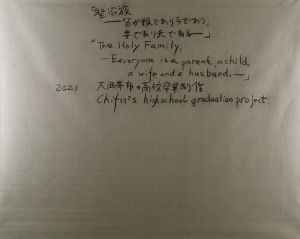 「聖家族
——皆が親であり子であり、
妻であり夫である——」
"The Holy Family.
—Eeveryone is a parent, a child,
a wife and a husband.—"
2021 高校卒業制作
Chifu's highschool graduation project.